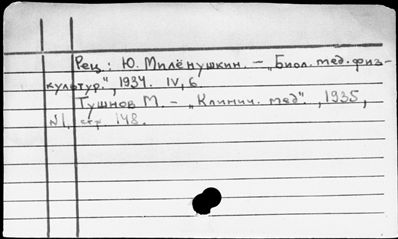 Рец.: Ю. Милёнушкин. – „Биол. мед. физ-
культур.", 1934. IV, 6.
Тушнов М. – „Клинич. мед". , 1935,
№1, стр 148.